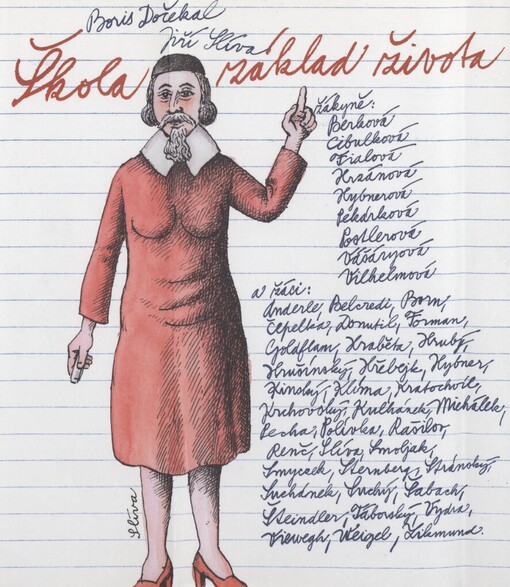 Boris Dočekal
Jiří Slíva
Škola základ života
žákyně:
Berková
Cibulková
Fialová
Hrzánová
Hybnerová
Pekárková
Postlerová
Vášáryová
Vilhelmová
a žáci:
Anderle, Belcredi, Born,
Čepelka, Donutil, Forman,
Goldflam, Hraběta, Hrubý,
Hrušínský, Hřebejk, Hybner,
Kinský, Klíma, Kratochvíl,
Krchovský, Kulhánek, Michálek,
Pecha, Polívka, Rašilov,
Renč, Slíva, Smoljak,
Smyczek, Sternberg, Stránský,
Suchánek, Suchý, Šabach,
Šteindler, Táborský, Vydra,
Viewegh, Weigel, Žilmund.
Slíva